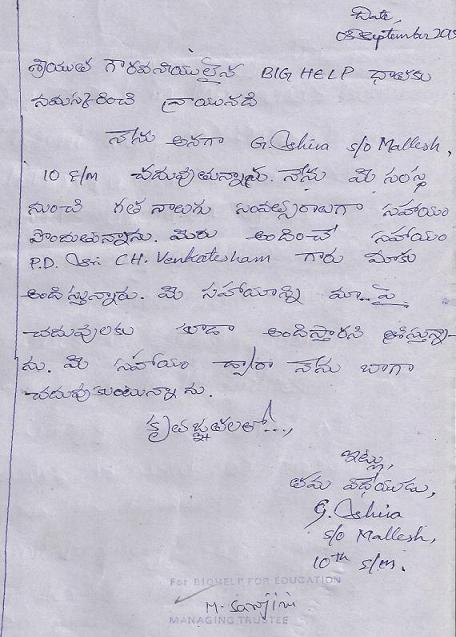 Date,
03 September 200
శ్రీయుత గౌరవనీయులైన BIG HELP దాతకు
నమస్కరించి వ్రాయునది
నేను అనగా G. Eshwa s/o Mallesh,
10 E/m చదువుతున్నాను. నేను మీ సంస్థ
నుంచి గత నాలుగు సంవత్సరాలుగా సహాయం
పొందుతున్నాను. మీరు అందించే సహాయం
P.D. Sri CH. Venkatesham గారు మాకు
అందిస్తున్నారు. మీ సహాయాన్ని మా పై
చదువులకు కూడా అందిస్తారని ఆశిస్తున్నా-
ను. మీ సహాయం ద్వారా నేను బాగా
చదువుకుంటున్నాను.
కృతజ్ఞతలతో...,
ఇట్లు,
తమ విధేయుడు,
G.
s/o Mallesh,
10th
For BIGHELP FOR EDUCATION
M. Sanjini
MANAGING TRUSTEE